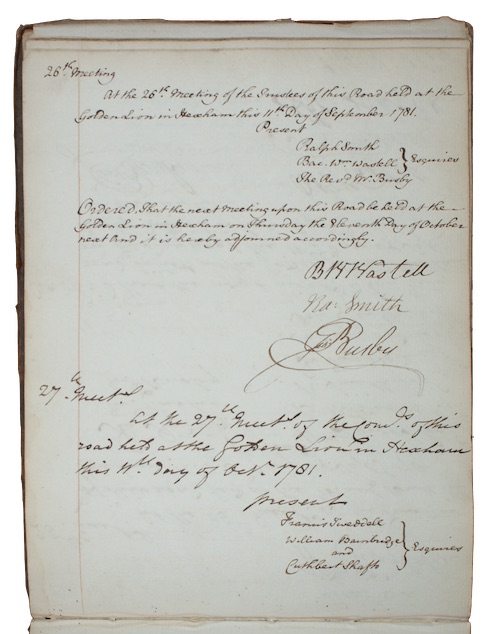 26th Meeting
At the 26th Meeting of the Trustees of this Road held at the
Golden Lion in Hexham this 11th Day of September 1781.
Present
Ralph Smith
Bac. Wm Wastell } Esquires
The Revd Mr. Busby
Ordered That the next Meeting upon this Road be held at the
Golden Lion in Hexham on Thursday the Eleventh Day of October
next And it is hereby adjourned accordingly.
B W Wastell
Ra: Smith
Busby
27th Meetg
At the 27th Meetg of the Coms of this
road held at the Golden Lion in Hexham
this 11th day of Octr 1781.
present
Francis Tweddell
William Bainbridge } Esquires
and
Cuthbert Shafto